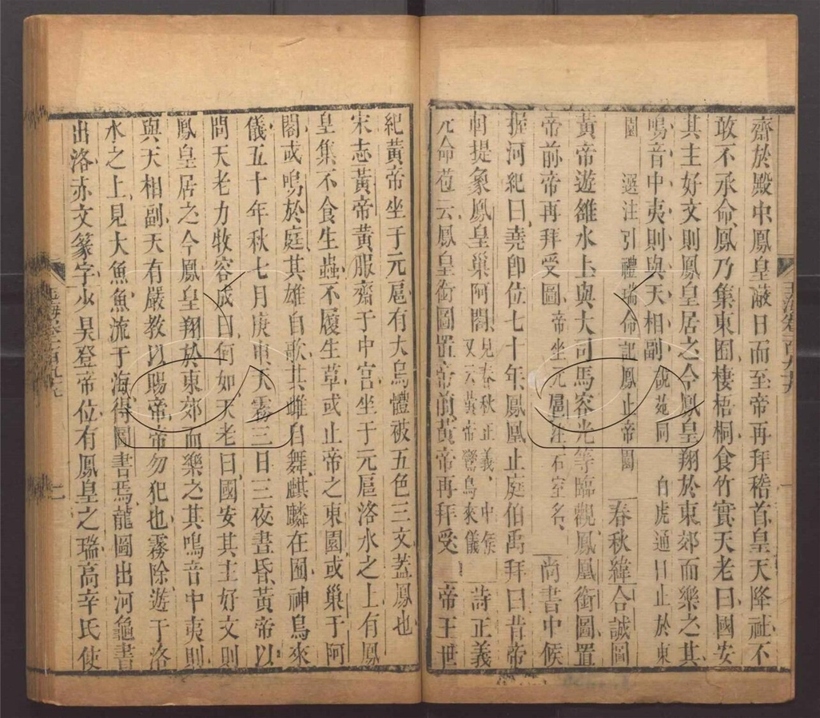 齊於殿中鳳皇蔽日而至帝再拜稽首皇天降祉不
敢不承命鳳乃集東囿棲梧桐食竹實天老曰國安
其主好文則鳳皇居之今鳳皇翔於東郊而樂之其
鳴音中夷則與天相副說苑同 白虎通曰止於東
園 選注引禮瑞命記鳳止帝園 春秋緯合誠圖
黃帝遊雒水上與大司馬容光等臨觀鳳凰銜圖置
帝前帝再拜受圖帝坐元扈注石室名 尚書中候
握河紀曰堯即位七十年鳳凰止庭伯禹拜曰昔帝
軒提象鳳皇巢阿閣見春秋正義 中候又云黃帝鸞鳥來儀 詩正義
元命苞云鳳皇銜圖置帝前黃帝再拜受 帝王世
玉海卷一百九十九
紀黃帝坐于元扈有大鳥體被五色三文蓋鳳也
宋志黃帝黃服齋于中宮坐于元扈洛水之上有鳳
皇集不食生蟲不履生草或止帝之東園或巢于阿
閣或鳴於庭其雄自歌其雌自舞麒麟在囿神鳥來
儀五十年秋七月庚申大霧三日三夜晝昏黃帝以
問天老力牧容成曰何如天老曰國安其主好文則
鳳皇居之今鳳皇翔於東郊而樂之其鳴音中夷則
與天相副天有嚴教以賜帝帝勿犯也霧除遊于洛
水之上見大魚魚流于海得圖書焉龍圖出河龜書
出洛赤文篆字少昊登帝位有鳳皇之瑞高辛氏使